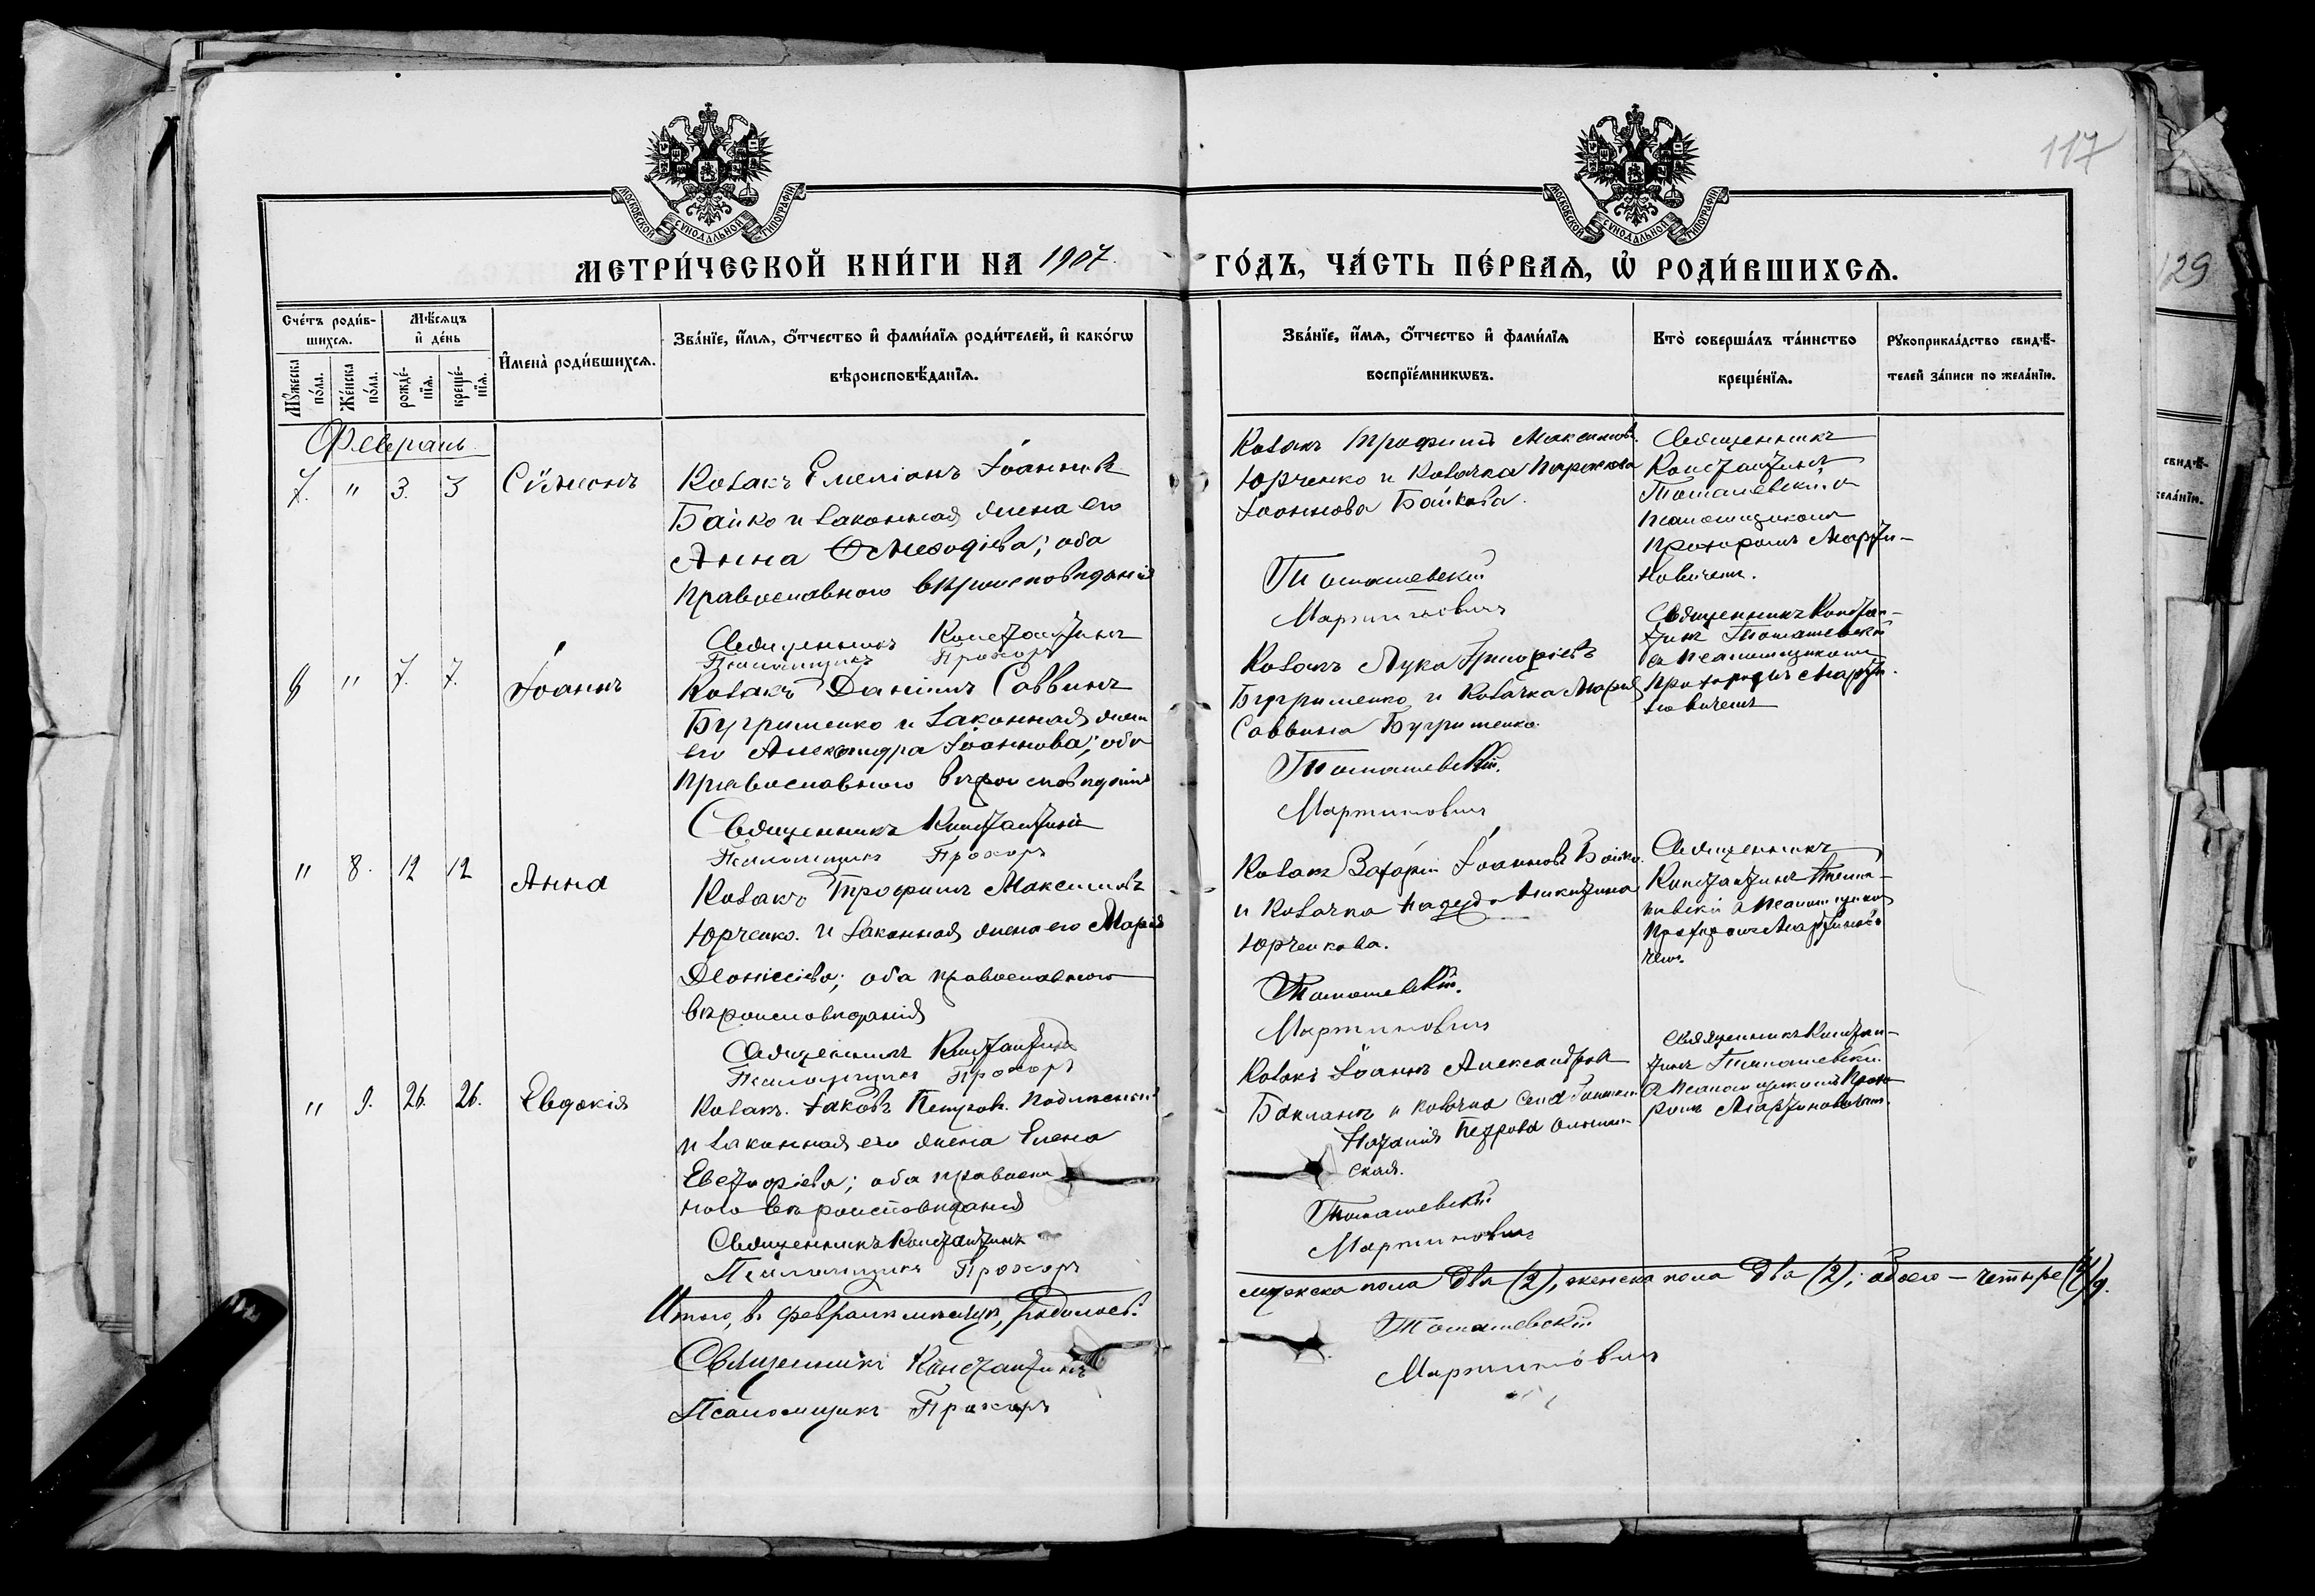 117
МОСКОВСКОЙ СѴНОДАЛЬНОЙ ТИПОГРАФІИ
МОСКОВСКОЙ СѴНОДАЛЬНОЙ ТИПОГРАФІИ
МЕТРИ́ЧЕСКОЙ КНИ́ГИ НА 1907. ГО́ДЪ, ЧА́СТЬ ПЕ́РВАѦ, Ѡ҆ РОДИ́ВШИХСѦ.
Сче́тъ роди́в-
шихсѧ.
Мꙋ́жеска по́ла.
Же́нска по́ла.
Мѣ́сѧцъ
и҆ де́нь
рожде́-
нїѧ.
креще́-
нїѧ.
И҆мена̀ роди́вшихсѧ.
Зва́нїе, и҆́мѧ, ѻ҆́тчество и҆ фами́лїѧ роди́телей, и҆ како́гѡ
вѣроисповѣ́данїѧ.
Зва́нїе, и҆́мѧ, ѻ҆́тчество и҆ фами́лїѧ
воспрїе́мникѡвъ.
Кто̀ соверша́лъ та́инство
креще́нїѧ.
Рꙋкоприкла́дство свидѣ́-
телей за́писи по жела́нїю.
Февраль
7. " 3. 3 Сѵмеонъ
Козакъ Емеліанъ Іоанновъ
Байко и законная жена его
Анна Меѳодіева; оба
православного вѣроисповѣданія
Священникъ Константинъ
Псаломщикъ Прохоръ
Козакъ Трофимъ Максимовъ
Юрченко и Козачка
Іоаннова Байкова.
Томашевскій
Мартиновичъ
Священникъ
Константинъ
Томашевскій съ
псаломщикомъ
Прохоромъ Марти-
новичемъ.
8 " 7. 7. Іоаннъ
Козакъ Даніилъ Саввинъ
Бугрименко и законная жена
его Александра Іоаннова; оба
православного вѣроисповѣданія
Священникъ Константинъ
Псаломщикъ Прохоръ
Козакъ Лука Григоріевъ
Бугрименко и Козачка Марія
Саввина Бугрименко
Томашевскій.
Мартиновичъ
Священникъ Констан-
тинъ Томашевскій
съ псаломщикомъ
Прохоромъ Марти-
новичемъ
" 8. 12 12 Анна
Козакъ Трофимъ Максимовъ
Юрченко. и законная жена его Марія
Діонисіева; оба православного
вѣроисповѣданія
Священникъ Константинъ
Псаломщикъ Прохоръ
Козакъ Захарій Іоанновъ Байко
и Козачка Надежда Никитина
Юрченкова.
Томашевскій.
Мартиновичъ
Священникъ
Константинъ Тома-
шевскій съ псаломщикомъ
Прохоромъ Мартинови-
чемъ.
" 9. 26. 26. Евдокія
Козакъ. Іаковъ Петровъ.
и законная его жена Елена
Евстафіева; оба православ
ного вѣроисповѣданія
Священникъ Константинъ
Псаломщикъ Прохоръ
Козакъ Іоаннъ Александровъ
Бакланъ и козачка села
Наталія Петрова
ская.
Томашевскій
Мартиновичъ
Священникъ Констан-
тинъ Томашевскій
съ псаломщикомъ Прохо-
ромъ Мартиновичемъ.
Итого, въ февралѣ мѣсяцѣ, родилось: мужеска пола два (2), женска пола два (2); обоего — четыре (4) д.
Священникъ Константинъ Томашевскій
Псаломщикъ Прохоръ Мартиновичъ
129
свидѣ-
жела́нїю.